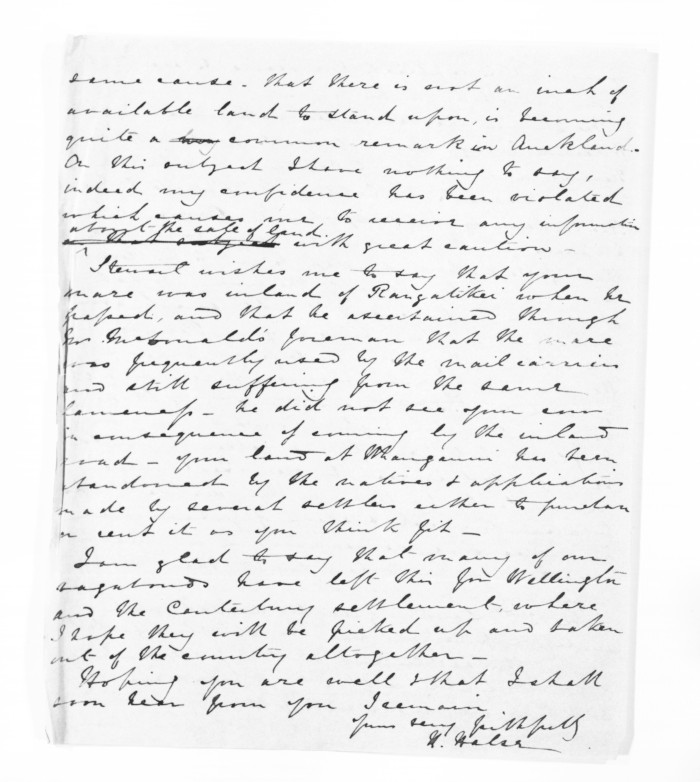 same cause - that there is not an inch of
available land to stand upon, is becoming
quite a common remark in Auckland -
On this subject I have nothing to say,
indeed my confidence has been violated
which causes me to receive any information
about the sale of land
with great caution -
Stewart wishes me to say that your
mare was inland of Rangatikei when he
passed, and that he ascertained through
Mr. McDonald's foreman that the mare
was frequently used by the mail carriers
and still suffering from the same
lameness - he did not see your
in consequence of coming by the inland
road - your land at Mangaiuru has been
abandoned by the natives & applications
made by several settlers either to purchase
or rent it as you think fit -
I am glad to say that many of our
vagabonds have left this for Wellington
and the Canterbury settlement, where
I hope they will be picked up and taken
out of the country altogether -
Hoping you are well & that I shall
soon hear from you I remain
yours very faithfully
H. Halse